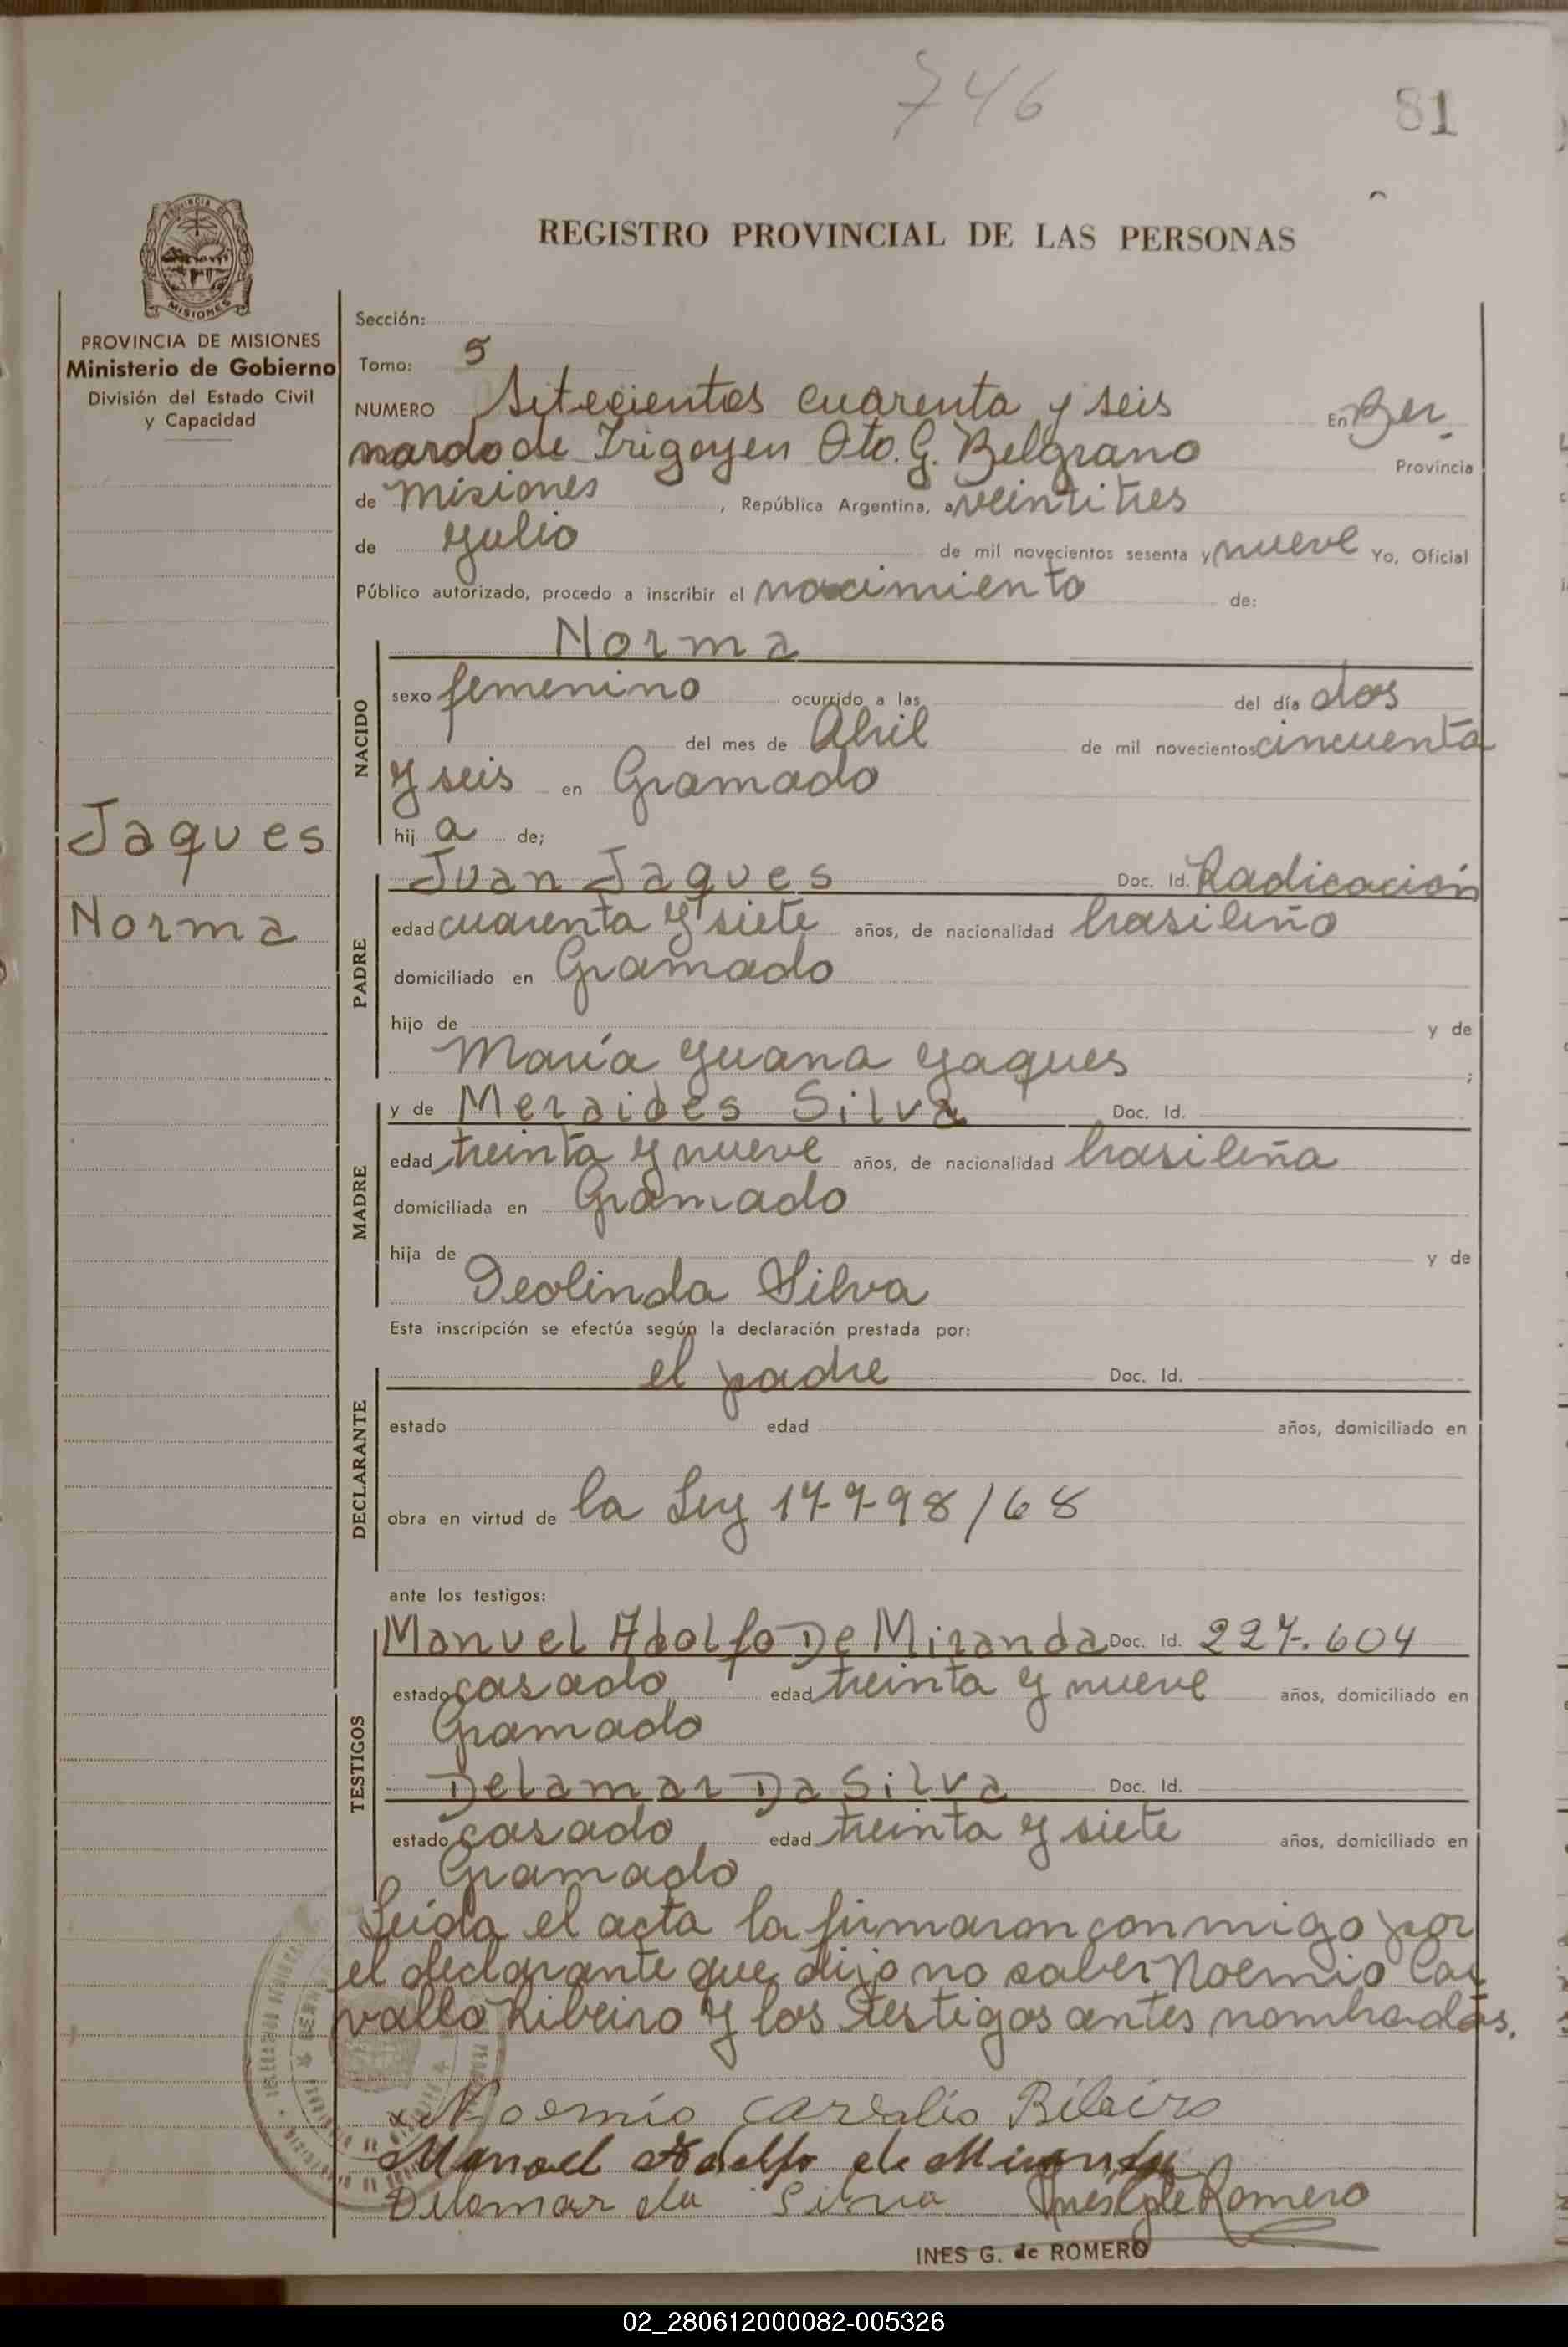 746
81
REGISTRO PROVINCIAL DE LAS PERSONAS
MISIONES
PROVINCIA DE MISIONES
Ministerio de Gobierno
División del Estado Civil
y Capacidad
Jaques
Norma
Sección:
Tomo: 5
NUMERO Setecientos cuarenta y seis En Ber
nardo de Irigoyen Dto. G. Belgrano Provincia
de Misiones, República Argentina, a veintitres
de Julio de mil novecientos sesenta y nueve Yo, Oficial
Público autorizado, procedo a inscribir el nacimiento de:
NACIDO
Norma
sexo femenino ocurrido a las del día dos
del mes de Abril de mil novecientos cincuenta
y seis en Gramado
hij a de;
PADRE
Juan Jaques Doc. Id. Radicación
edad cuarenta y siete años, de nacionalidad brasileño
domiciliado en Gramado
hijo de y de
María Juana Jaques ;
MADRE
y de Meraides Silva Doc. Id.
edad treinta y nueve años, de nacionalidad brasileña
domiciliada en Gramado
hija de y de
Deolinda Silva
Esta inscripción se efectúa según la declaración prestada por:
DECLARANTE
el padre Doc. Id.
estado edad años, domiciliado en
obra en virtud de la Ley 17798/68
ante los testigos:
TESTIGOS
Manuel Adolfo De Miranda Doc. Id. 227.604
estado casado edad treinta y nueve años, domiciliado en
Gramado
Delamar Da Silva Doc. Id.
estado casado edad treinta y siete años, domiciliado en
Gramado
Leída el acta la firmaron conmigo por
el declarante que dijo no saber Noemio Car
vallo Ribeiro y los testigos antes nombrados.
Noemio Carvalio Ribeiro
Manoel Adolfo de Miranda
Delamar da Silva Ines G de Romero
INES G. de ROMERO
02_280612000082-005326